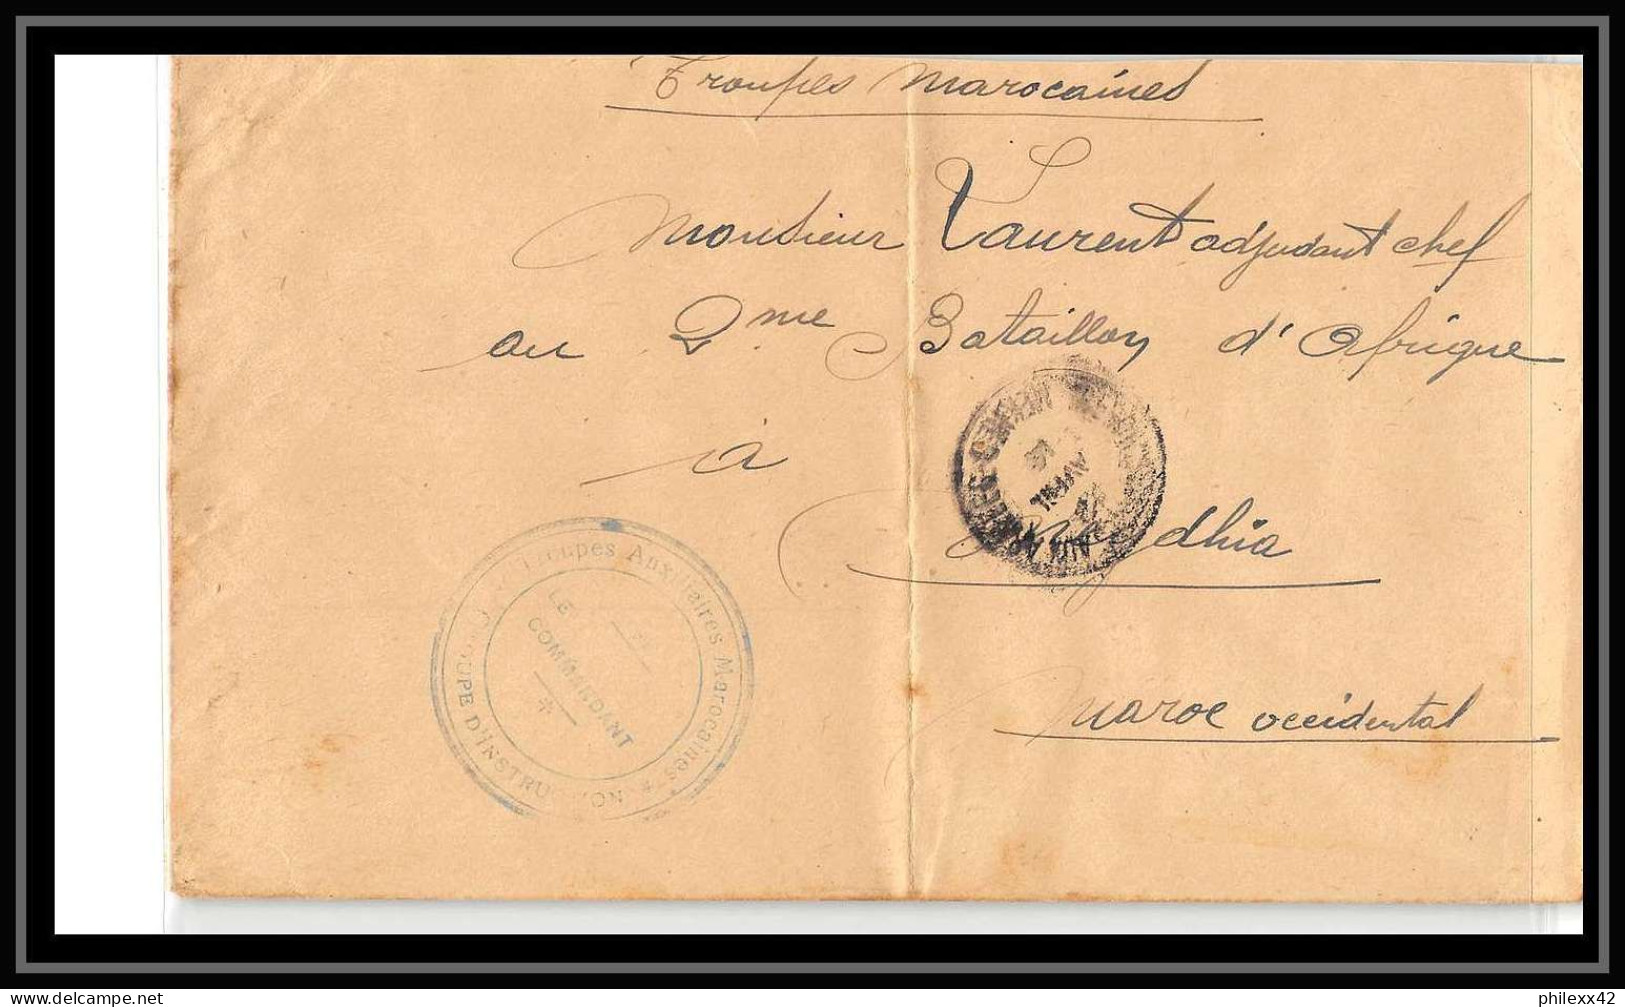 Troupes Marocaines
Monsieur Laurent adjudant chef
au 2me Bataillon d'Afrique
à
dhia
Maroc occidental
Troupes Auxiliaires Marocaines
GROUPE D'INSTRUCTION
LE
COMMANDANT
philexx42